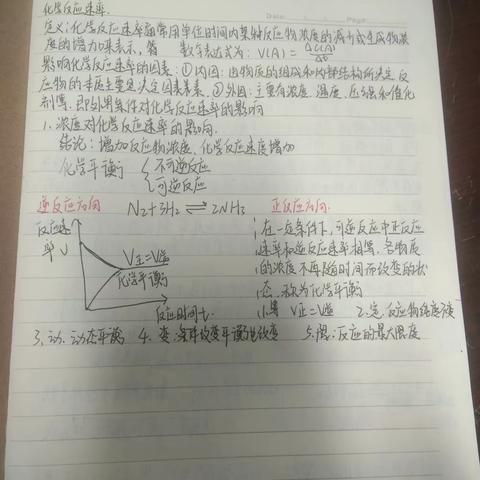 化学反应速率.
定义:化学反应速率通常用单位时间内某种反应物浓度的减少或生成物浓
度的增加来表示, 数学表达式为: V(A) = Δc(A)/Δt
影响化学反应速率的因素:①内因:由物质的组成和内部结构所决定,反
应物的本质主要是决定因素 ②外因:主要有浓度、温度、压强和催化
剂等. 即外界条件对化学反应速率的影响
1、浓度对化学反应速率的影响.
结论:增加反应物浓度,化学反应速度增加
化学平衡 { 不可逆反应
可逆反应
逆反应方向 N2+3H2 ⇌ 2NH3 正反应方向.
反应速率 υ
V正=V逆
化学平衡
反应时间t.
在一定条件下,可逆反应中正反应
速率和逆反应速率相等,各物质
的浓度不再随时间而改变的状
态,称为化学平衡
V正=V逆 2.定.反应物浓度
3、动.动态平衡 4、变.条件改变平衡也改变 5.限:反应的最大限度